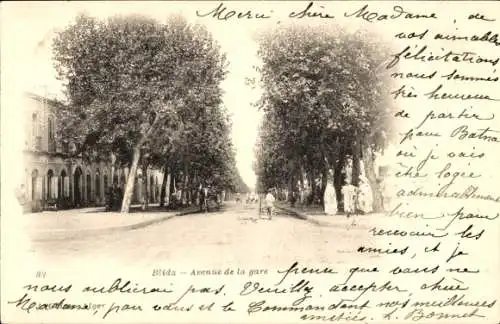 Merci, chère Madame, de
vos aimables
félicitations
nous sommes
très heureux
de partir
pour Batna
où je vais
être logé
admirablement
bien pour
recevoir les
amies, et je
pense que vous
nous oublierai pas. Veuillez accepter, chère
Madame, pour vous et le Commandant nos meilleures
amitiés. L. Bonnet
Blida — Avenue de la gare